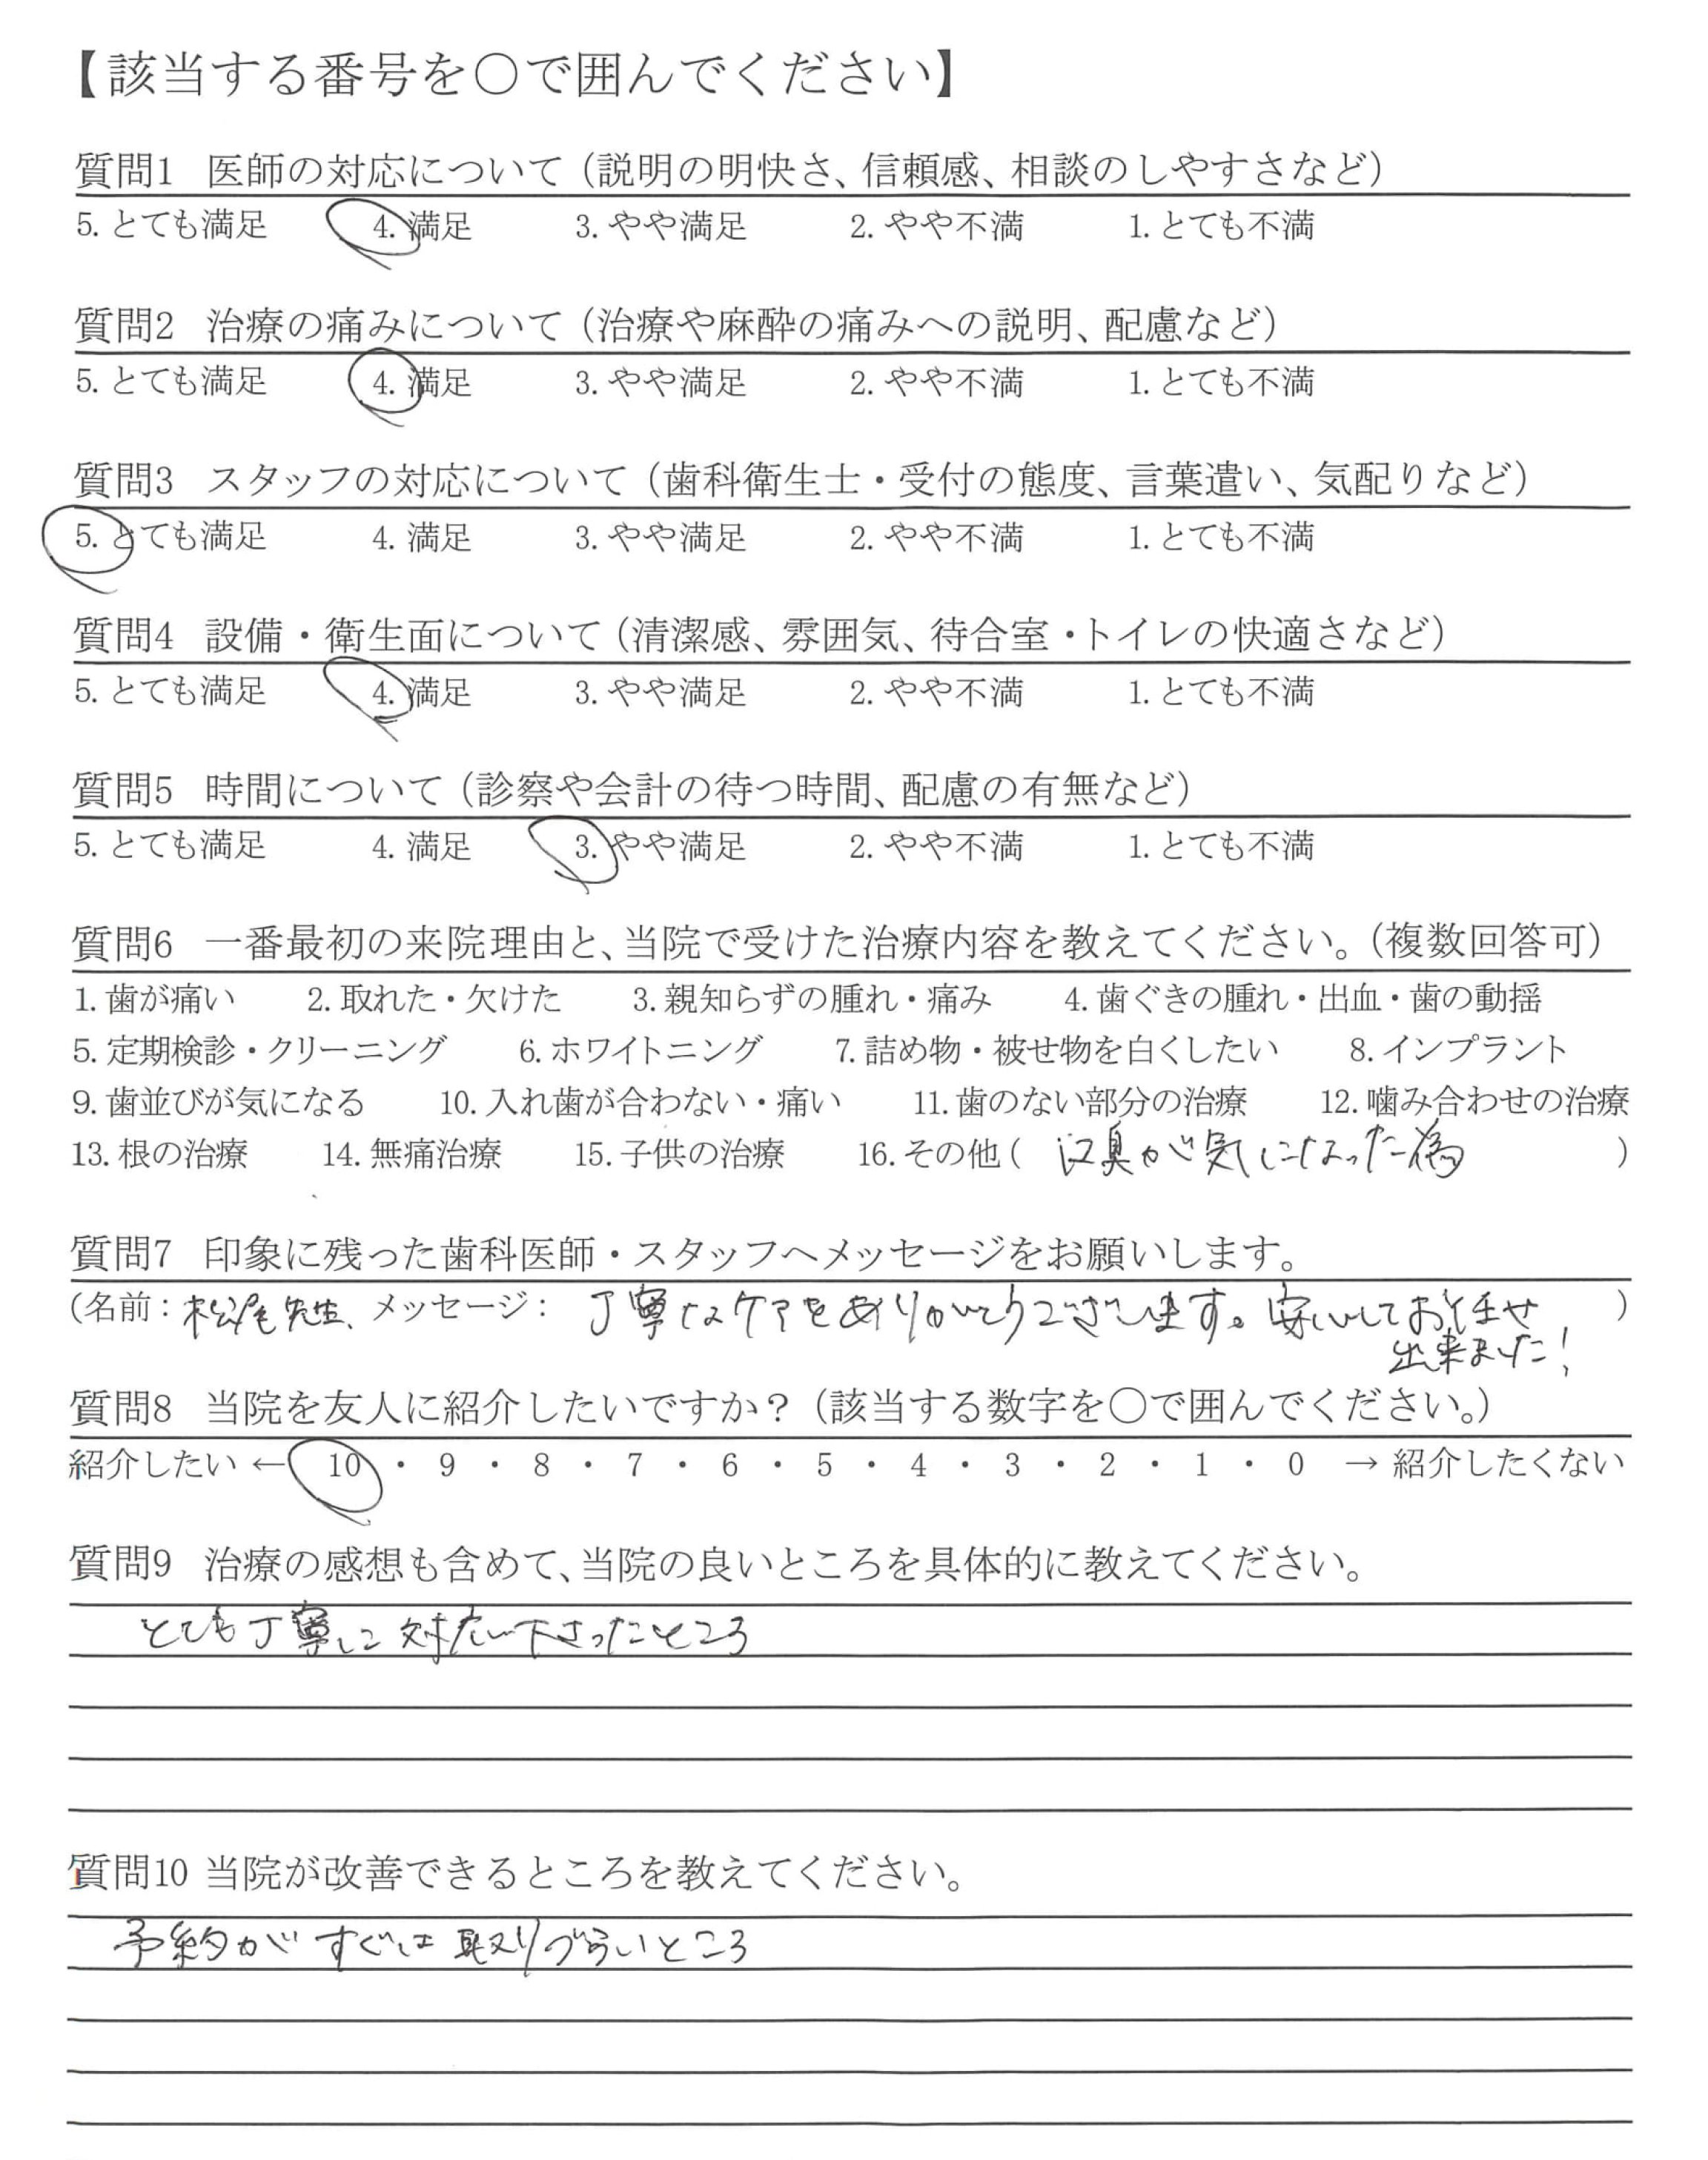 【該当する番号を〇で囲んでください】
質問1 医師の対応について（説明の明快さ、信頼感、相談のしやすさなど）
5. とても満足 4. 満足 3. やや満足 2. やや不満 1. とても不満
質問2 治療の痛みについて（治療や麻酔の痛みへの説明、配慮など）
5. とても満足 4. 満足 3. やや満足 2. やや不満 1. とても不満
質問3 スタッフの対応について（歯科衛生士・受付の態度、言葉遣い、気配りなど）
5. とても満足 4. 満足 3. やや満足 2. やや不満 1. とても不満
質問4 設備・衛生面について（清潔感、雰囲気、待合室・トイレの快適さなど）
5. とても満足 4. 満足 3. やや満足 2. やや不満 1. とても不満
質問5 時間について（診察や会計の待つ時間、配慮の有無など）
5. とても満足 4. 満足 3. やや満足 2. やや不満 1. とても不満
質問6 一番最初の来院理由と、当院で受けた治療内容を教えてください。（複数回答可）
1. 歯が痛い 2. 取れた・欠けた 3. 親知らずの腫れ・痛み 4. 歯ぐきの腫れ・出血・歯の動揺
5. 定期検診・クリーニング 6. ホワイトニング 7. 詰め物・被せ物を白くしたい 8. インプラント
9. 歯並びが気になる 10. 入れ歯が合わない・痛い 11. 歯のない部分の治療 12. 噛み合わせの治療
13. 根の治療 14. 無痛治療 15. 子供の治療 16. その他（ 口臭が気になった為 ）
質問7 印象に残った歯科医師・スタッフへメッセージをお願いします。
（名前：松尾先生、メッセージ： 丁寧なケアをありがとうございます。安心してお任せ ）
出来ました！
質問8 当院を友人に紹介したいですか？（該当する数字を〇で囲んでください。）
紹介したい ← 10 ・ 9 ・ 8 ・ 7 ・ 6 ・ 5 ・ 4 ・ 3 ・ 2 ・ 1 ・ 0 → 紹介したくない
質問9 治療の感想も含めて、当院の良いところを具体的に教えてください。
とても丁寧に対応下さったところ
質問10 当院が改善できるところを教えてください。
予約がすぐは取りづらいところ